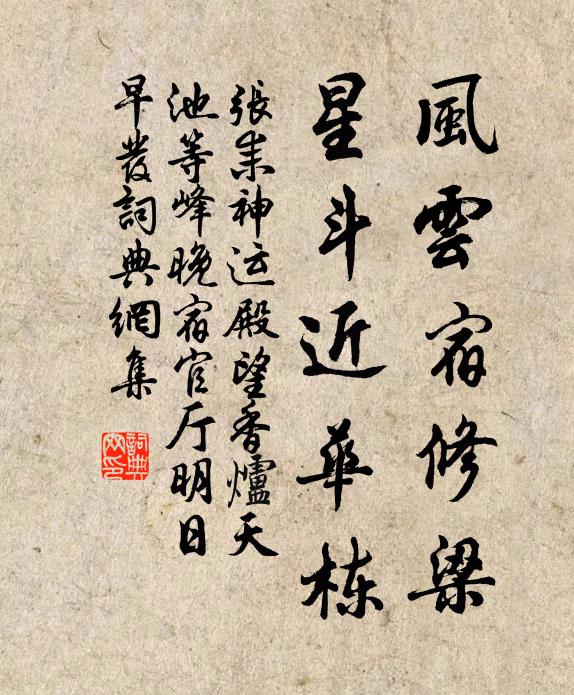 風雲宿修梁
星斗近華栋
張耒神运殿望香爐天
池等峰晚宿官厅明日
早發詞典網集
詞典
网印